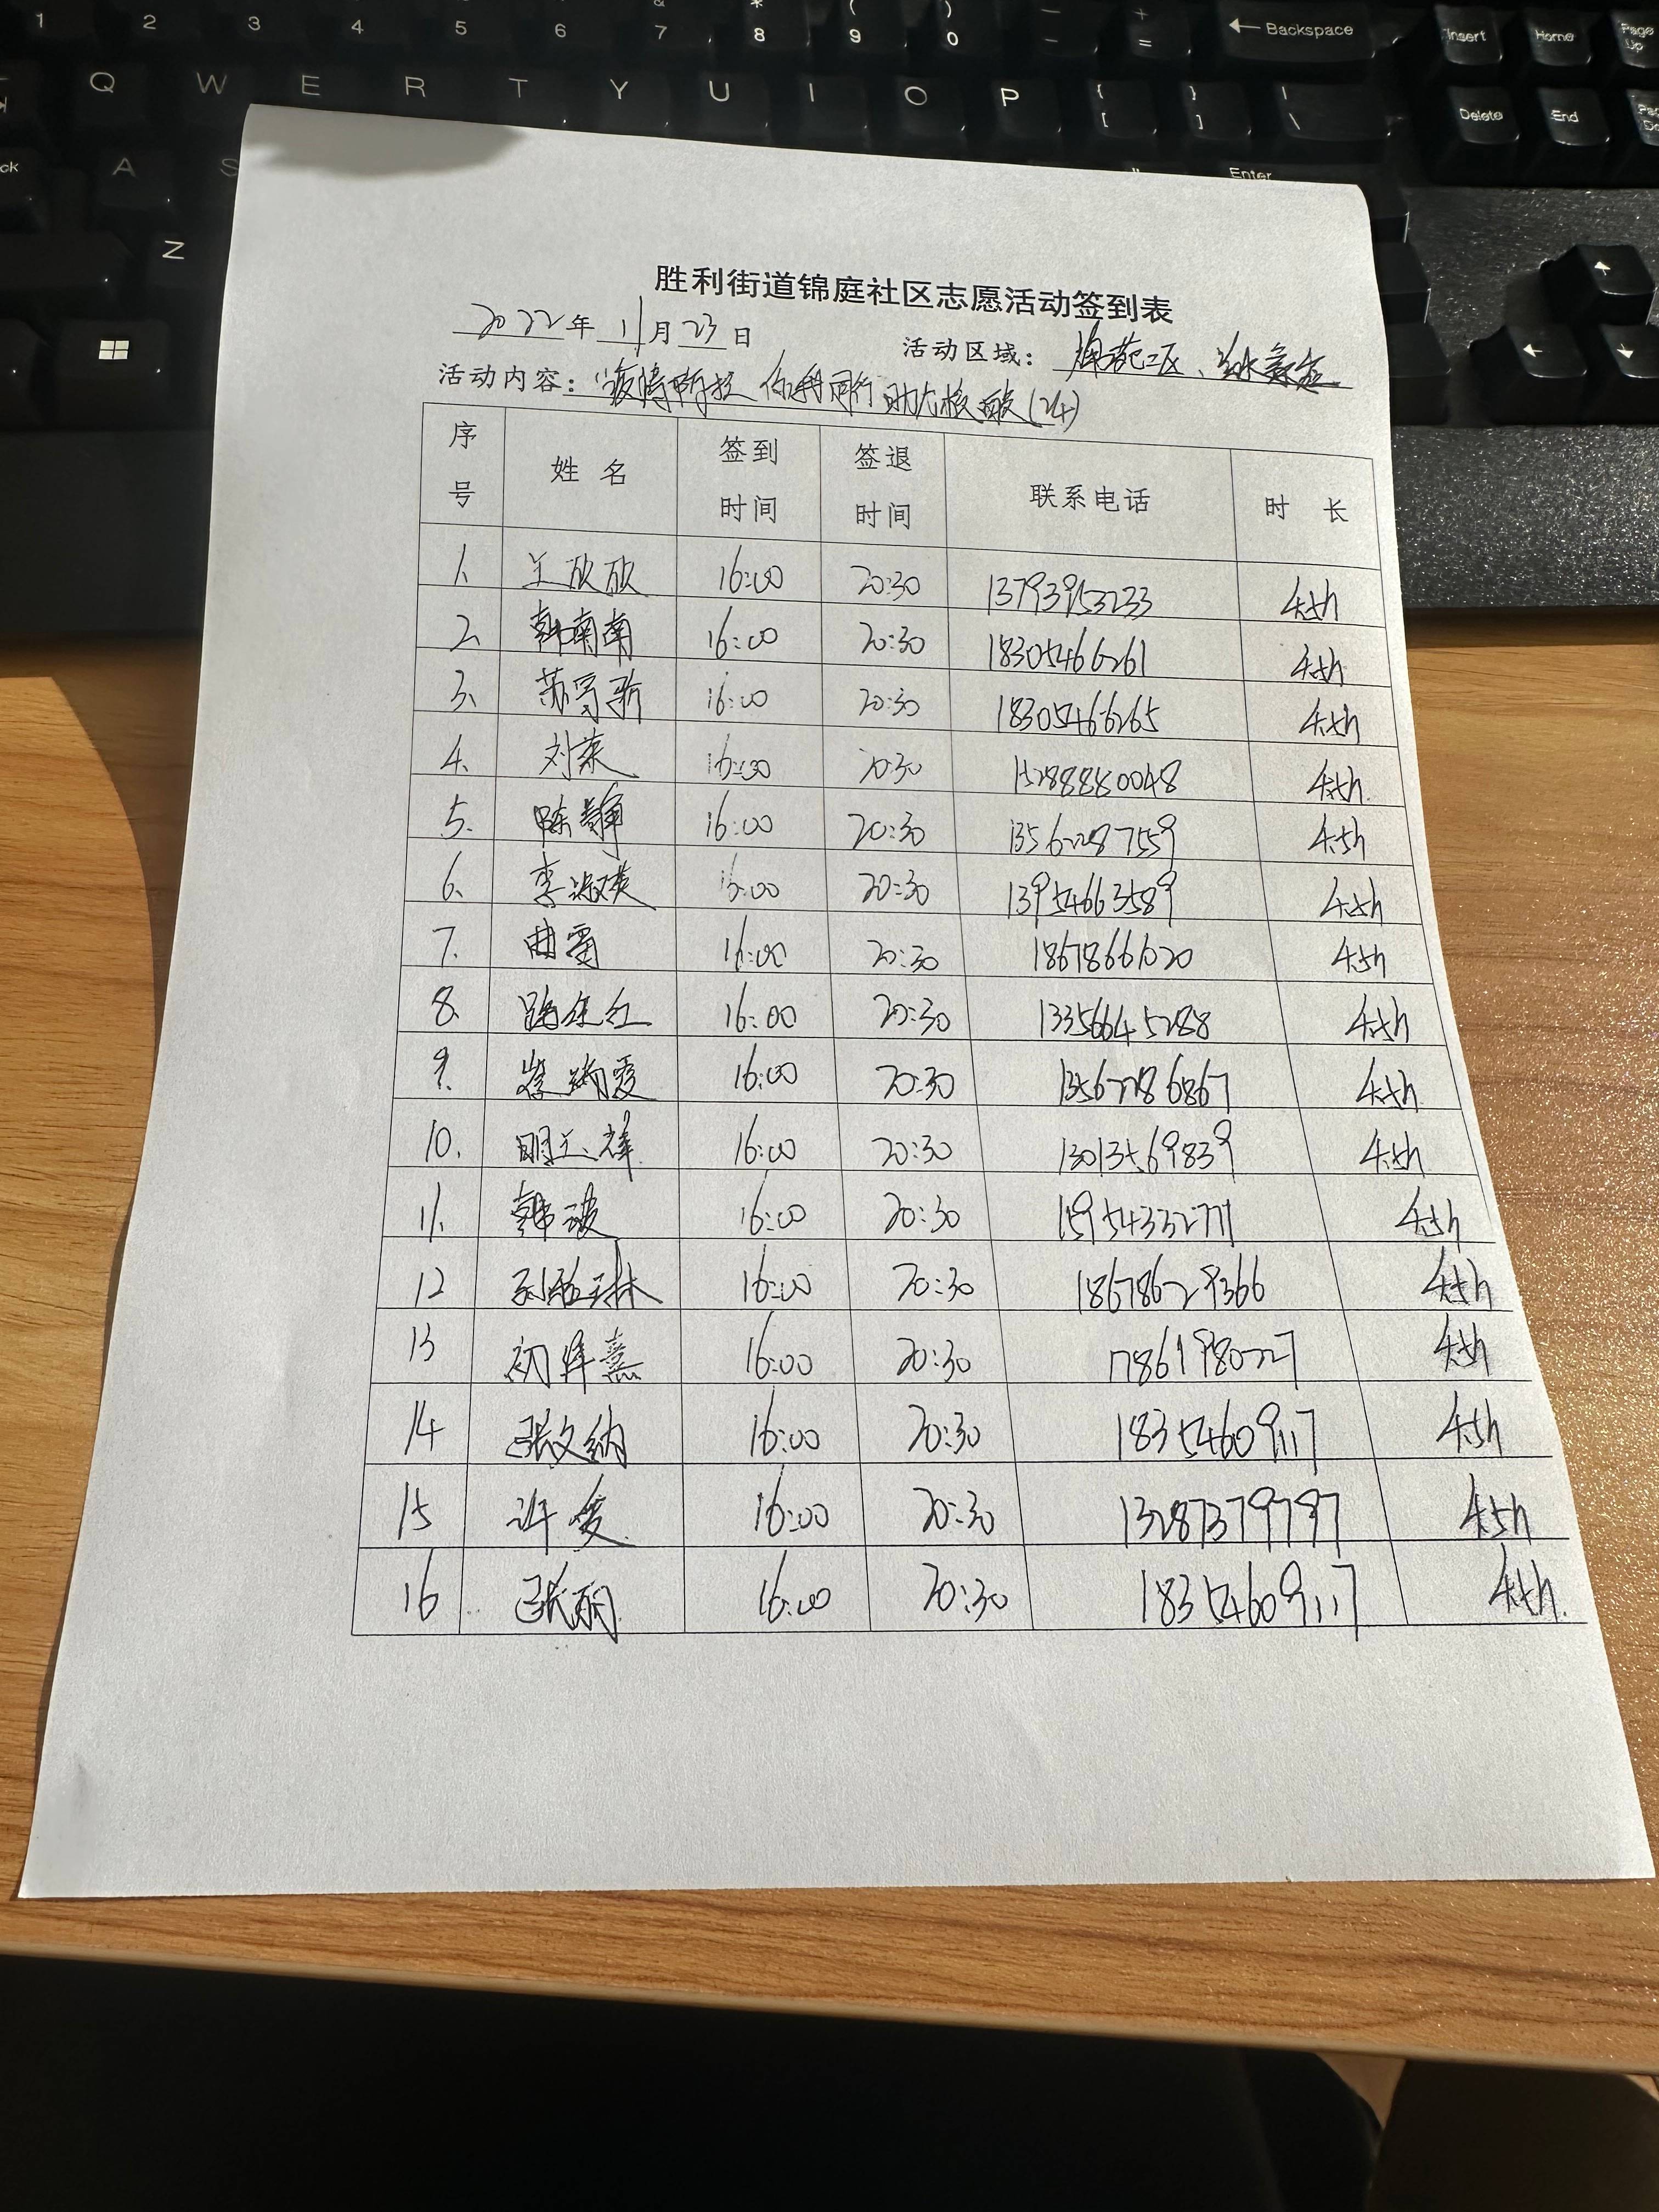 1 2 3 4 5 6 & 7 * 8 ( 9 ) 0 — - + = Backspace Insert Home Page Up
Q W E R T Y U I O P { [ } ] | \ Delete End
A S " Enter
Z
胜利街道锦庭社区志愿活动签到表
2022年 11月 23日 活动区域: 二区、
活动内容: 疫情防控 你我同行 助力核酸(24)
序号 姓 名 签到时间 签退时间 联系电话 时 长
1. 王欣欣 16:00 20:30 13793953233 4.5h
2. 韩南南 16:00 20:30 18305466261 4.5h
3. 苏 16:00 20:30 18305466265 4.5h
4. 刘荣 16:00 20:30 15288880048 4.5h.
5. 陈静 16:00 20:30 13562287559 4.5h
6. 李淑英 16:00 20:30 13954663589 4.5h
7. 曲雷 16:00 20:30 4.5h
8. 红 16:00 20:30 13356645288 4.5h
9. 崔 爱 16:00 20:30 13562286867 4.5h
10. 明 16:00 20:30 13013569839 4.5h
11. 韩波 16:00 20:30 15954332771 4.5h
12 琳 16:00 20:30 18678629366 4.5h
13 初 熹 16:00 20:30 17861980227 4.5h
14 张文纳 16:00 20:30 18354609117 4.5h
15 许爱 16:00 20:30 13287379797 4.5h
16 张丽 16:00 20:30 18354609117 4.5h.